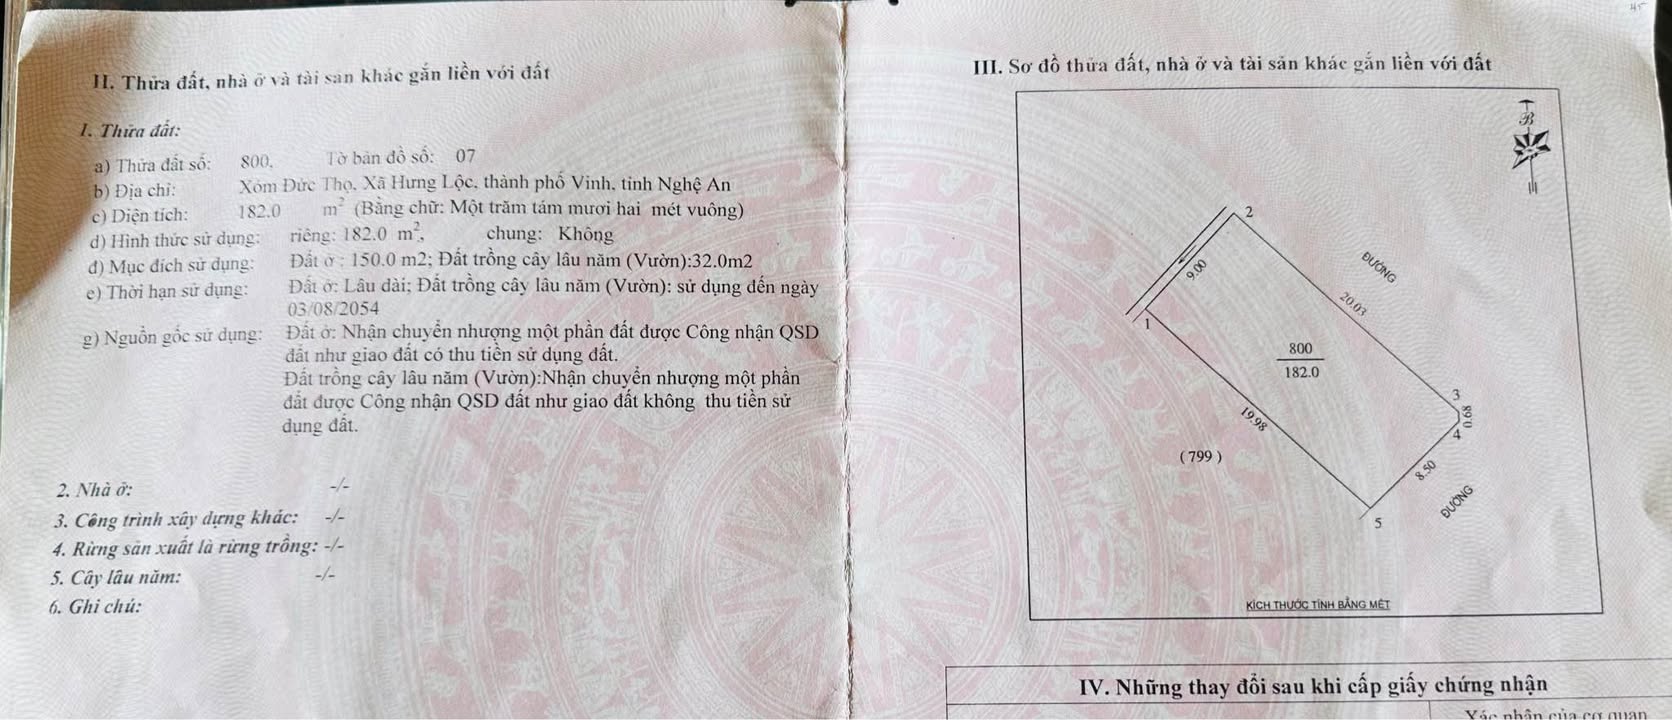 II. Thửa đất, nhà ở và tài sản khác gắn liền với đất
1. Thửa đất:
a) Thửa đất số: 800, Tờ bản đồ số: 07
b) Địa chỉ: Xóm Đức Thọ, Xã Hưng Lộc, thành phố Vinh, tỉnh Nghệ An
c) Diện tích: 182.0 m² (Bằng chữ: Một trăm tám mươi hai mét vuông)
d) Hình thức sử dụng: riêng: 182.0 m², chung: Không
đ) Mục đích sử dụng: Đất ở : 150.0 m2; Đất trồng cây lâu năm (Vườn):32.0m2
e) Thời hạn sử dụng: Đất ở: Lâu dài; Đất trồng cây lâu năm (Vườn): sử dụng đến ngày
03/08/2054
g) Nguồn gốc sử dụng: Đất ở: Nhận chuyển nhượng một phần đất được Công nhận QSD
đất như giao đất có thu tiền sử dụng đất.
Đất trồng cây lâu năm (Vườn):Nhận chuyển nhượng một phần
đất được Công nhận QSD đất như giao đất không thu tiền sử
dụng đất.
2. Nhà ở: -/-
3. Công trình xây dựng khác: -/-
4. Rừng sản xuất là rừng trồng: -/-
5. Cây lâu năm: -/-
6. Ghi chú:
III. Sơ đồ thửa đất, nhà ở và tài sản khác gắn liền với đất
B
2
9.00
ĐƯỜNG
20.03
1
800
182.0
3
0.68
4
19.98
(799)
8.50
ĐƯỜNG
5
KÍCH THƯỚC TÍNH BẰNG MÉT
IV. Những thay đổi sau khi cấp giấy chứng nhận
Xác nhận của cơ quan